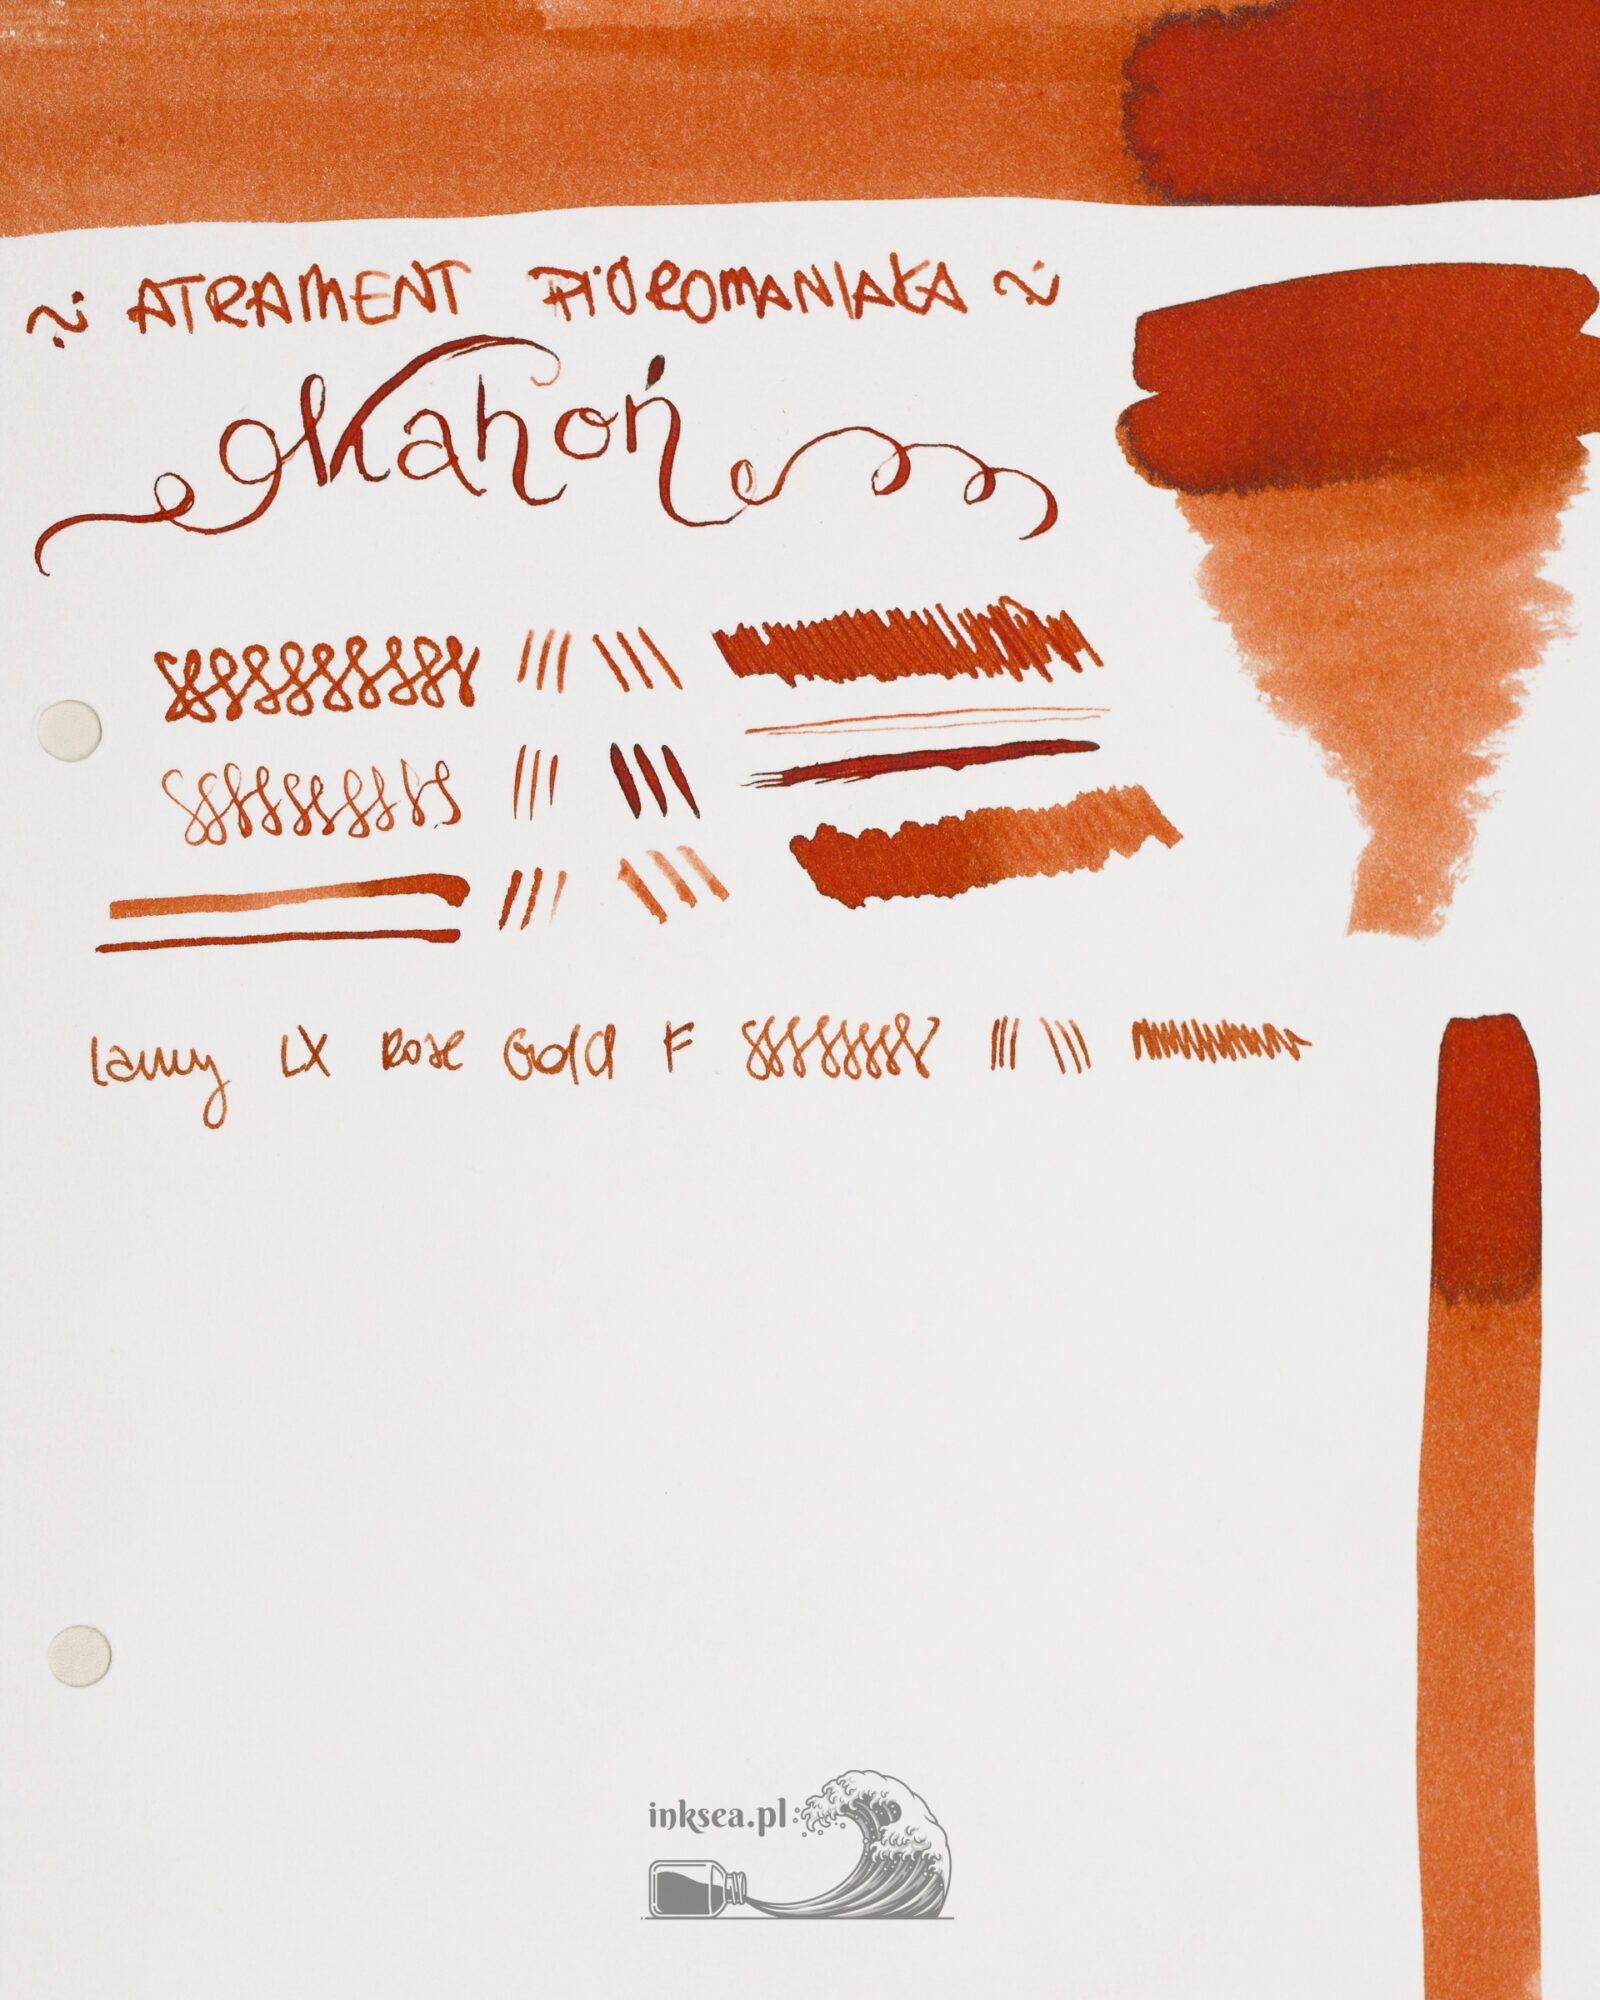 ATRAMENT PIÓROMANIAKA
Mahoń
Lamy LX Rose Gold F
inksea.pl